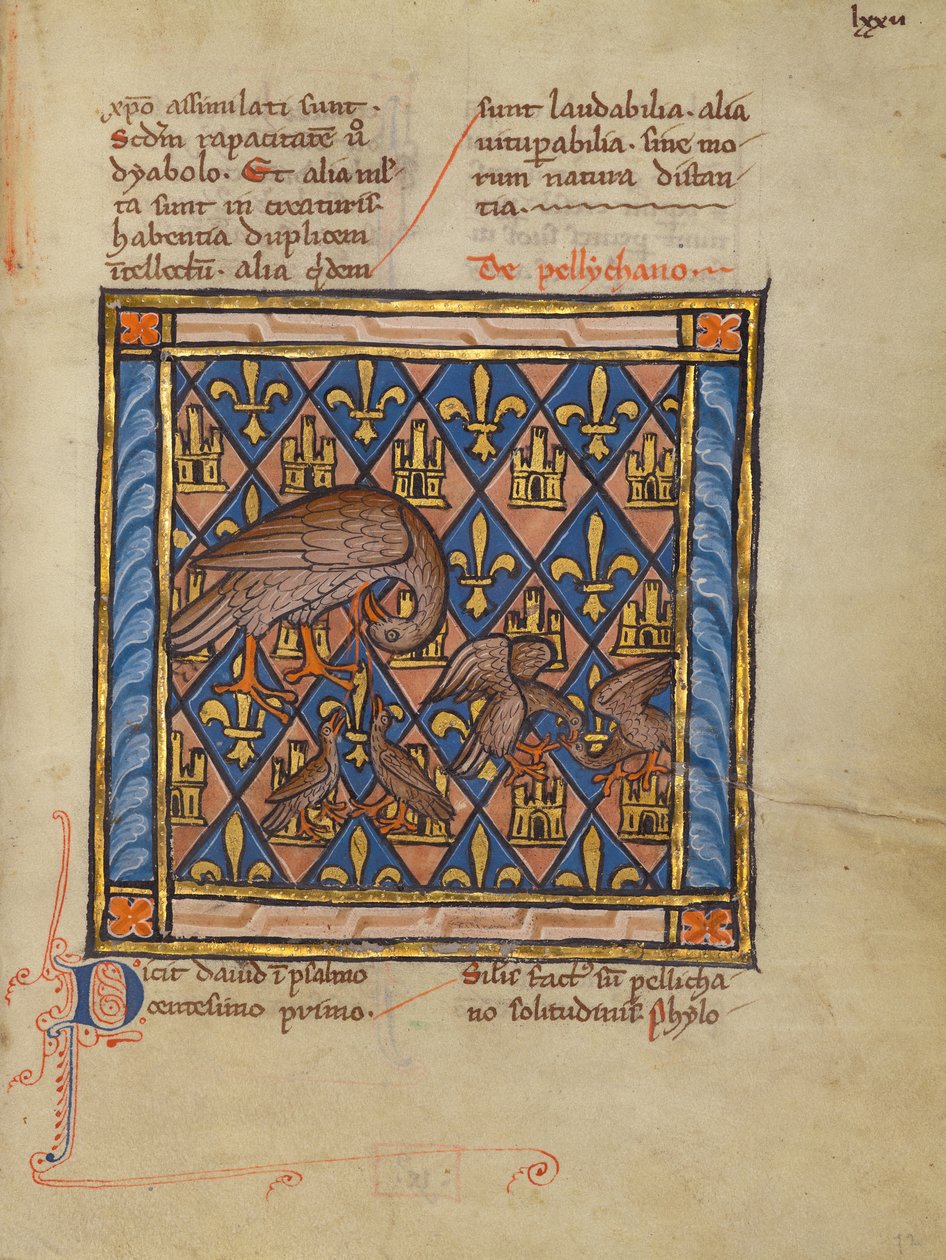 lxxii
xp̄o assimilati sunt.
Scd̄m rapacitatē ů
dyabolo. Et alia ml̓
ta sunt in creaturis.
habentia duplicem
ītellectū. alia q̓dem
sunt laudabilia. alia
uitup̱abilia. sine mo
rum natura distan
tia.
De pellychano.
Dicit dauid ī psalmo
centesimo primo.
Silis factꝰ sū pellicha
no solitudinis. Phylo